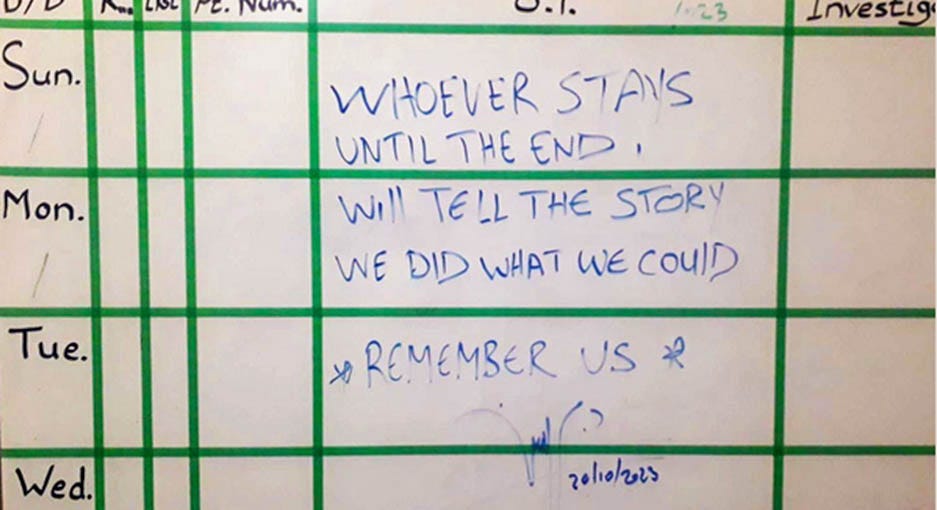 Pt. Num.
23
Sun.
WHOEVER STAYS
UNTIL THE END.
Mon.
Will TELL THE STORY
WE DID WHAT WE COUlD
Tue.
*REMEMBER US *
Wed.
20/10/2023